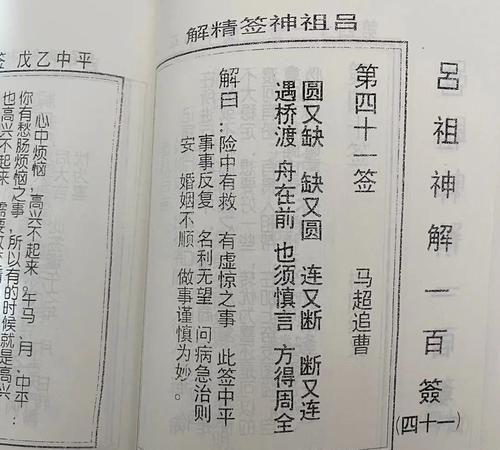 吕祖神签精解
吕祖神解一百簽
(四十一)
第四十一签 马超追曹
圆又缺 缺又圆 连又断 断又连
遇桥渡 舟在前 也须慎言 方得周全
解曰：险中有救 有虚惊之事 此签中平
事事反复 名利无望 问病急治则
安 婚姻不顺 做事谨慎为妙。
签 戊乙中平
心中烦恼，高兴不起来。午马，月，中平
你有愁肠烦恼之事，所以有的时候就是高兴
也高兴不起来